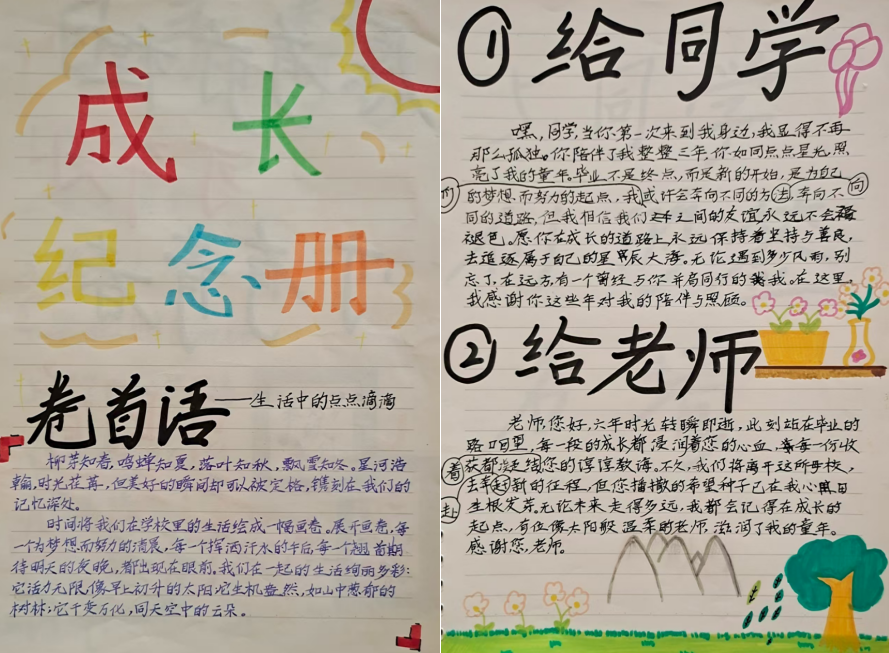 成长
纪念册
卷首语——生活中的点点滴滴
柳芽知春,鸣蝉知夏,落叶知秋,飘雪知冬。星河浩
瀚,时光荏苒,但美好的瞬间却可以被定格,镌刻在我们的
记忆深处。
时间将我们在学校里的生活绘成一幅画卷。展开画卷,每
一个为梦想而努力的清晨,每一个挥洒汗水的午后,每一个翘首期
待明天的夜晚,都出现在眼前。我们在一起的生活绚丽多彩:
它活力无限,像早上初升的太阳;它生机盎然,如山中葱郁的
树林;它千变万化,同天空中的云朵。
① 给同学
嘿,同学,当你第一次来到我身边,我显得不再
那么孤独。你陪伴了我整整三年,你如同点点星光,照
亮了我的童年。毕业不是终点,而是新的开始,是为自己
的梦想而努力的起点,我或许会奔向不同的方向,奔向不
同的道路,但我相信我们之间的友谊永远不会
褪色。愿你在成长的道路上永远保持着坚持与善良,
去追逐属于自己的星辰大海。无论遇到多少风雨,别
忘了,在远方,有一个曾经与你并肩同行的我。在这里,
我感谢你这些年对我的陪伴与照顾。
② 给老师
老师,您好,六年时光转瞬即逝,此刻站在毕业的
路口,每一段的成长都浸润着您的心血,每一份收
获都是您的谆谆教诲。不久,我们将离开这所母校,
赴新的征程,但您播撒的希望种子已在我心田
生根发芽。无论未来走得多远,我都会记得在成长的
起点,有位像太阳般温柔的老师,滋润了我的童年。
感谢您,老师。